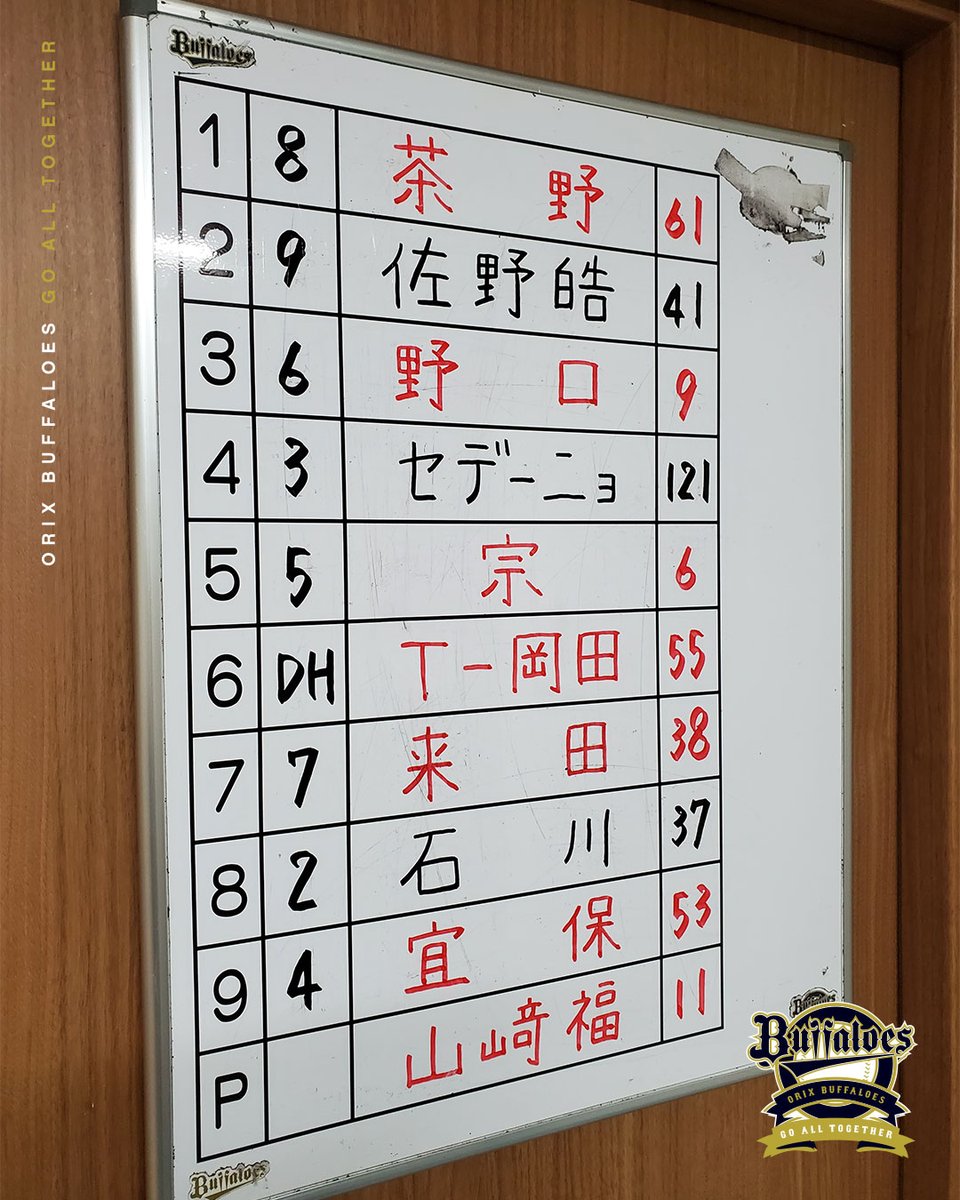 ORIX BUFFALOES GO ALL TOGETHER
Buffaloes
1 8 茶野 61
2 9 佐野皓 41
3 6 野口 9
4 3 セデーニョ 121
5 5 宗 6
6 DH T-岡田 55
7 7 来田 38
8 2 石川 37
9 4 宜保 53
P 山﨑福 11
Buffaloes
Buffaloes
ORIX BUFFALOES
GO ALL TOGETHER
Buffaloes